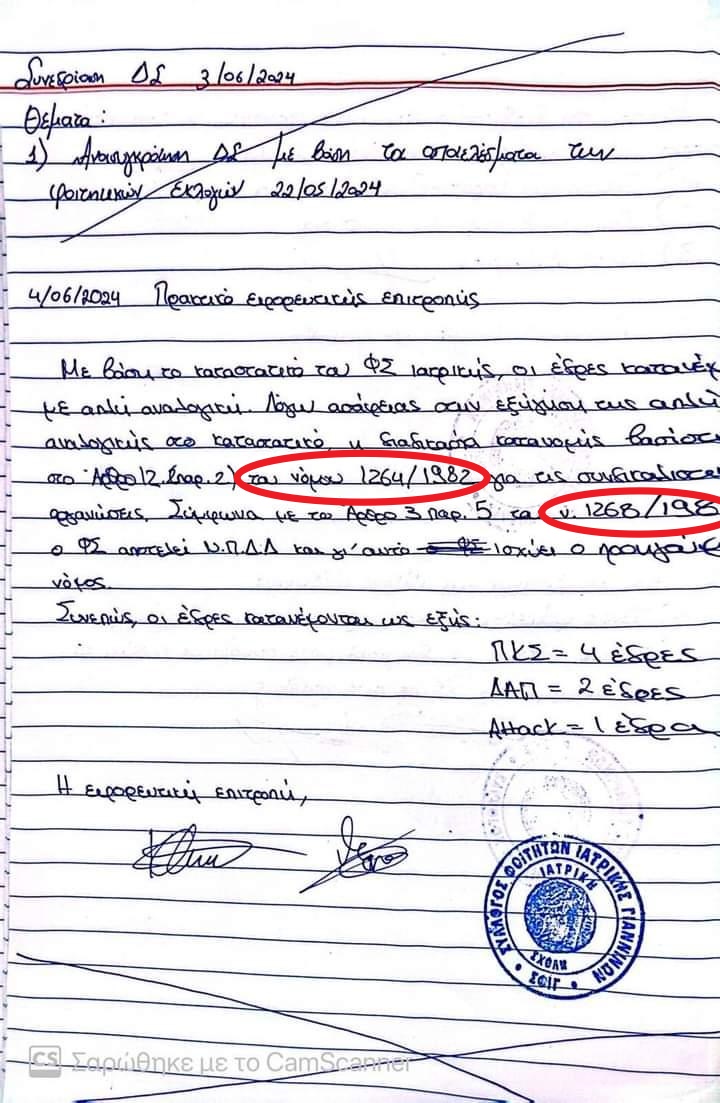 Συνεδρίαση ΔΣ 3/06/2024
Θέματα:
1) Ανασυγκρότηση ΔΣ με βάση τα αποτελέσματα των
φοιτητικών εκλογών 22/05/2024
4/06/2024 Πρακτικό εφορευτικής επιτροπής
Με βάση το καταστατικό του ΦΣ Ιατρικής, οι έδρες κατανέμ
με απλή αναλογική. Λόγω ασάφειας στην εξήγηση της απλή
αναλογικής στο καταστατικό, η διαδικασία κατανομής βασίστ
στο Άρθρο 12 παρ. 2) του νόμου 1264/1982 για τις συνδικαλιστι
οργανώσεις. Σύμφωνα με το Άρθρο 3 παρ. 5 του ν. 1268/198
ο ΦΣ αποτελεί Ν.Π.Δ.Δ και γι' αυτό ισχύει ο
νόμος.
Συνεπώς, οι έδρες κατανέμονται ως εξής:
ΠΚΣ = 4 έδρες
ΔΑΠ = 2 έδρες
Attack = 1 έδρα
Η εφορευτική επιτροπή,
ΣΥΛΛΟΓΟΣ ΦΟΙΤΗΤΩΝ ΙΑΤΡΙΚΗΣ ΓΙΑΝΝΙΝΩΝ
ΙΑΤΡΙΚΗ
ΣΧΟΛΗ
ΓΙΦΣ
CS Σαρώθηκε με το CamScanner